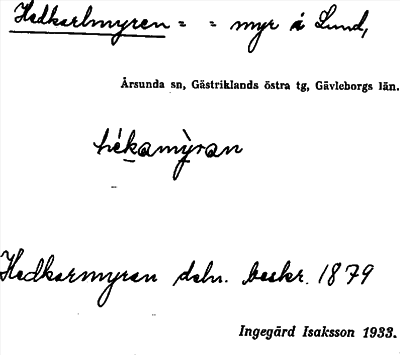 Hedkarlmyren = = myr å Lund,
Årsunda sn, Gästriklands östra tg, Gävleborgs län.
hékamỳran
Hedkarmyren dsbr. beskr. 1879
Ingegärd Isaksson 1933.